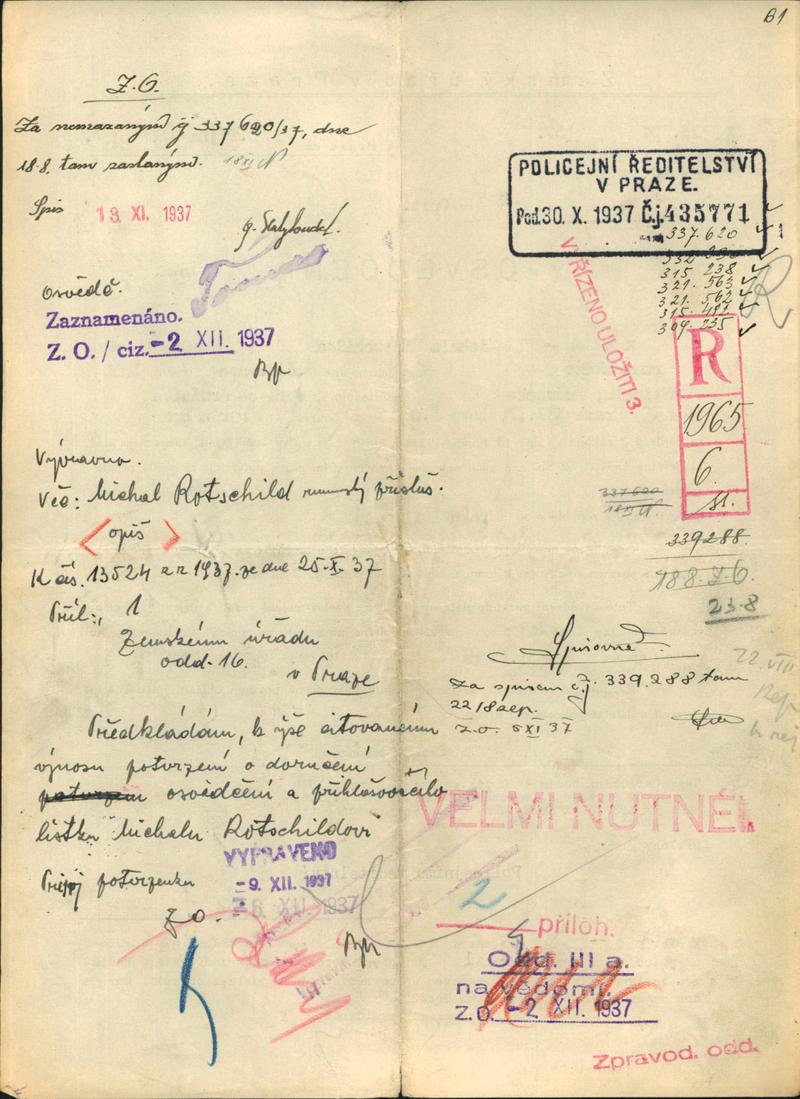 61
Z.O.
Za nemazaným čj 337620/37, dne
18.8. tam zaslaným. 18XI
Spis 18 XI. 1937
osvědč.
Zaznamenáno.
Z. O. / ciz. -2 XII. 1937
Výpravna.
Věc: Michal Rotschild rumunský přísluš.
< opis >
K čís. 13524 z r 1937. ze dne 25.X.37
Příl:, 1
Zemskému úřadu
odd. 16.
v Praze
Předkládám, k výše citovanému
výnosu potvrzení o doručení
osvědčení a přihlašovacího
lístku Michalu Rotschildovi
Příjem potvrzenku
VYPRAVENO
-9. XII. 1937
XII. 1937
Z O.
POLICEJNÍ ŘEDITELSTVÍ
V PRAZE.
Pod. 30. X. 1937 Č.j. 435771
337.620
315 238
321. 563
321. 562
309.235
VYŘÍZENO ULOŽITI 3.
R
1965
6.
337620
339288
188.Z.O.
23.8
22.VIII
Spisovně
Za spisem č.j. 339.288 tam
z.o. 5XI37
VELMI NUTNÉ!
2
příloh.
Odd. III a.
na vědomí.
Z.O. -2 XII. 1937
Zpravod. odd.